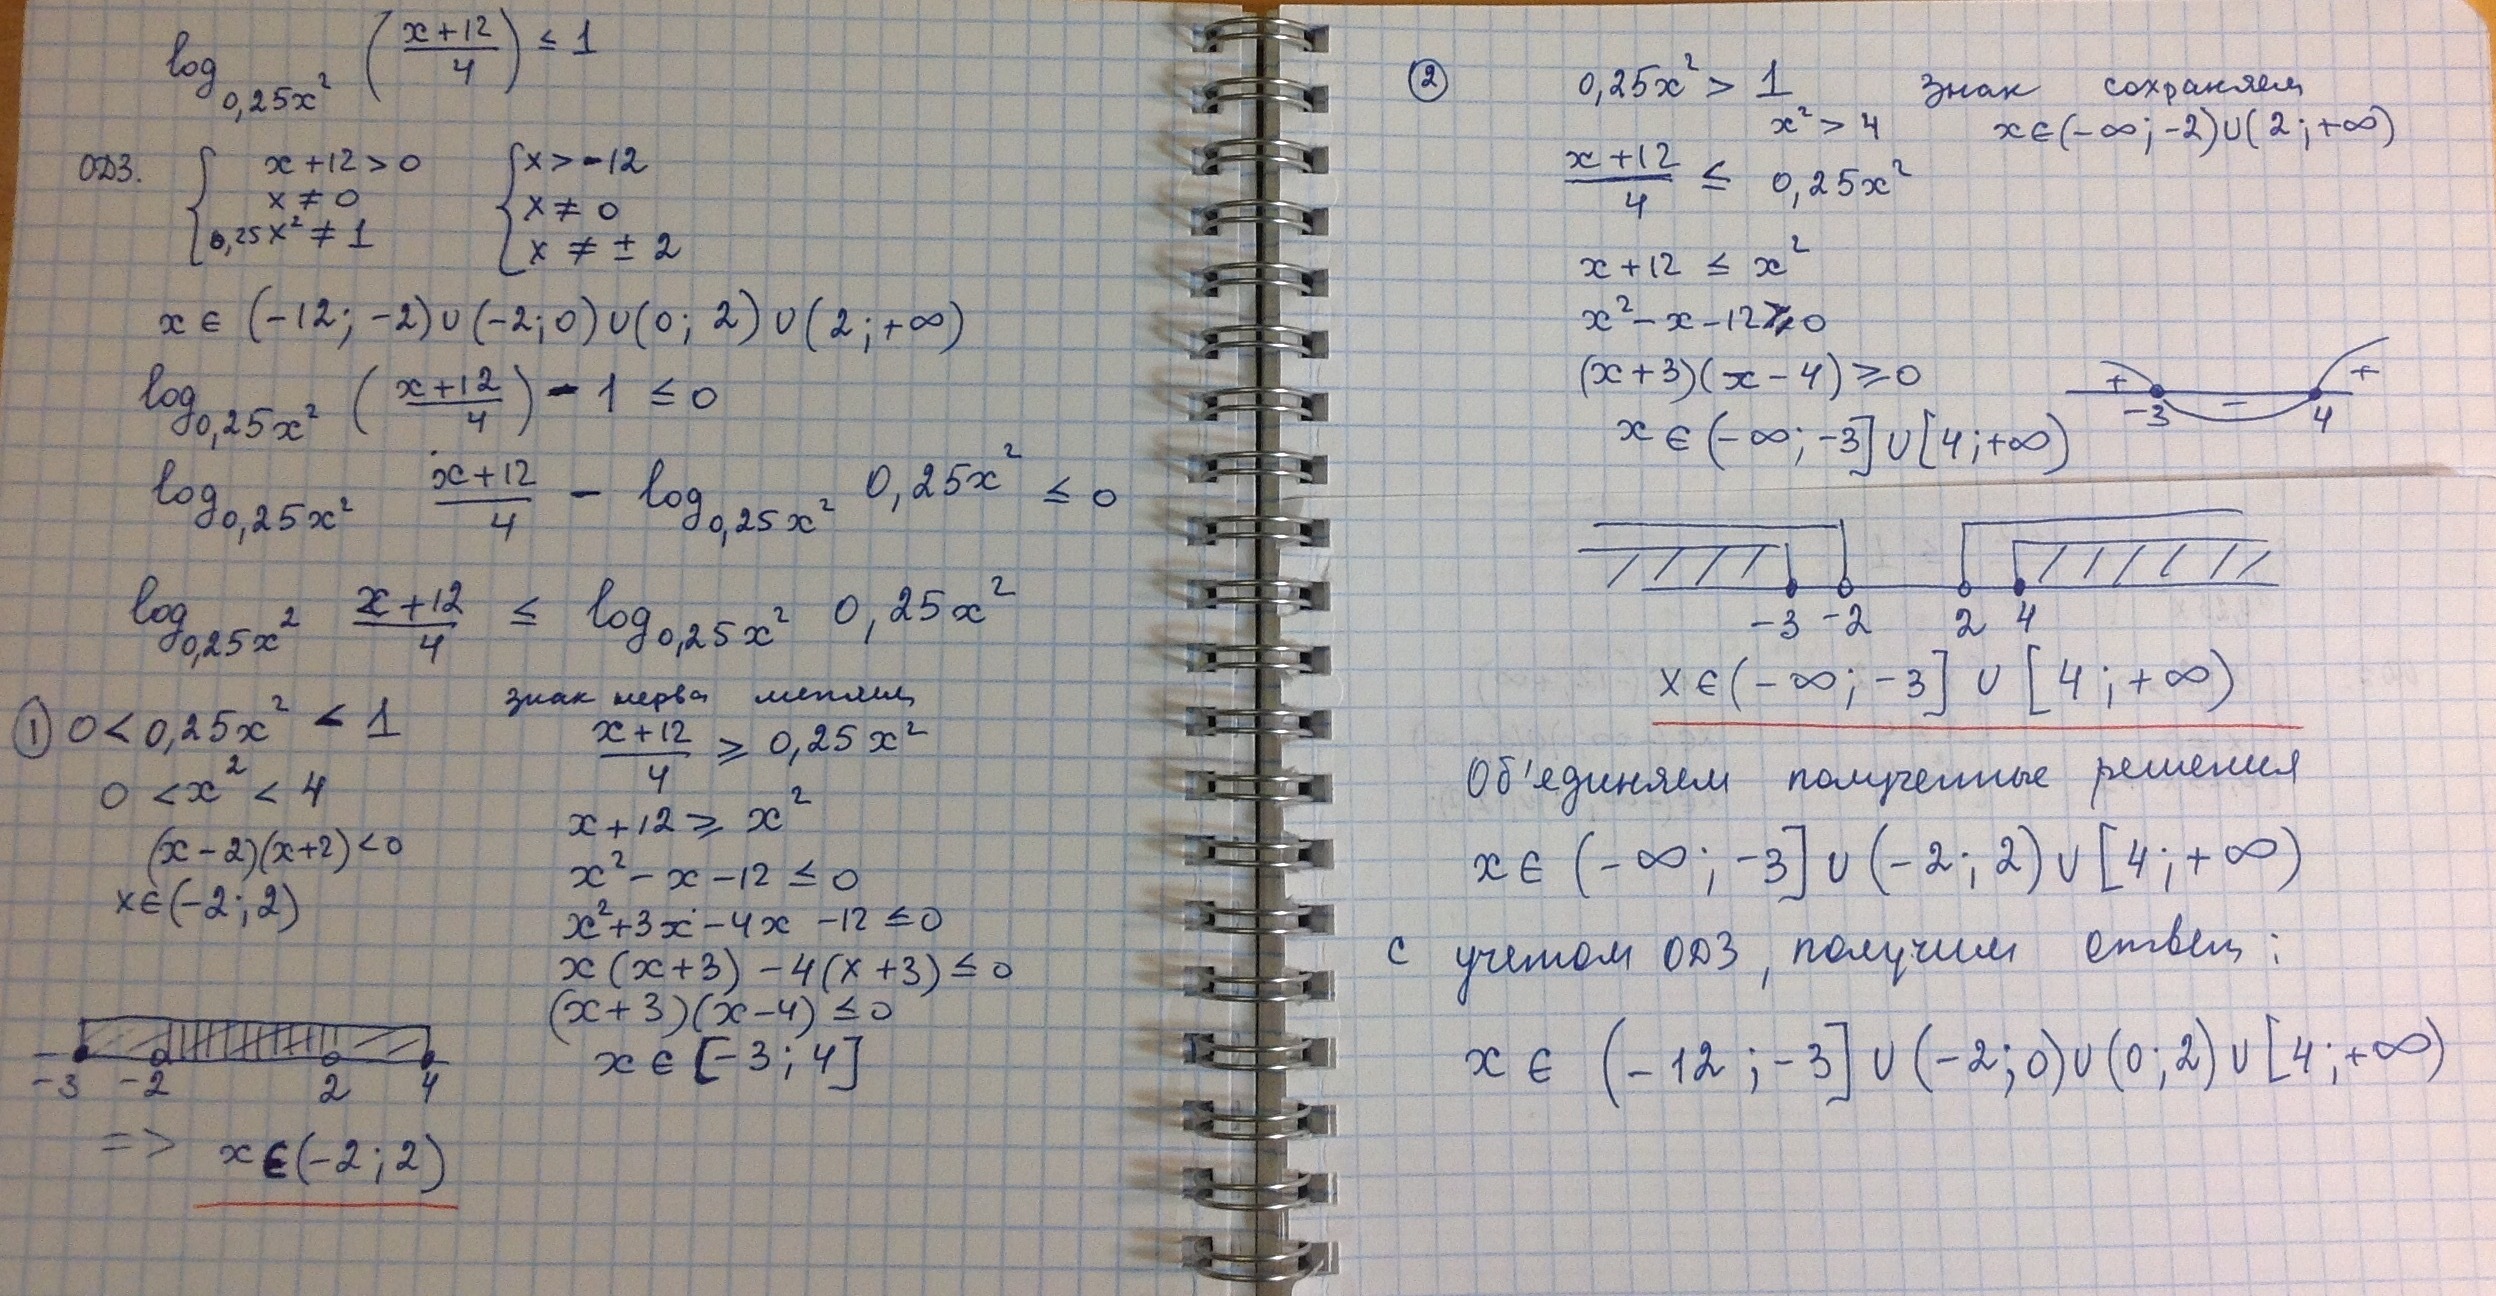 log_{0,25x²} ((x+12)/4) ≤ 1
ОДЗ. { x+12>0 { x>-12
x≠0 x≠0
0,25x²≠1 x≠±2
x ∈ (-12; -2)∪(-2;0)∪(0; 2)∪(2;+∞)
log_{0,25x²} ((x+12)/4) - 1 ≤ 0
log_{0,25x²} (x+12)/4 - log_{0,25x²} 0,25x² ≤ 0
log_{0,25x²} (x+12)/4 ≤ log_{0,25x²} 0,25x²
① 0 < 0,25x² < 1
0 < x² < 4
(x-2)(x+2)<0
x∈(-2;2)
знак нерва меняем
(x+12)/4 ≥ 0,25x²
x+12 ≥ x²
x²-x-12 ≤ 0
x²+3x-4x-12 ≤ 0
x(x+3)-4(x+3) ≤ 0
(x+3)(x-4) ≤ 0
x ∈ [-3; 4]
-3 -2 2 4
=> x∈(-2;2)
② 0,25x² > 1 знак сохраняем
x² > 4 x∈(-∞;-2)∪(2;+∞)
(x+12)/4 ≤ 0,25x²
x+12 ≤ x²
x²-x-12 ≥ 0
(x+3)(x-4) ≥ 0
+ - +
-3 4
x ∈ (-∞; -3]∪[4;+∞)
-3 -2 2 4
x∈(-∞;-3] ∪ [4;+∞)
Об'единяем полученные решения
x∈ (-∞; -3]∪(-2; 2)∪[4;+∞)
с учетом ОДЗ, получим ответ:
x ∈ (-12;-3]∪(-2;0)∪(0;2)∪[4;+∞)